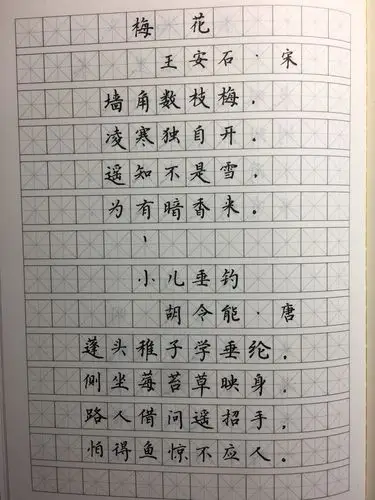 梅花
王安石·宋
墙角数枝梅，
凌寒独自开。
遥知不是雪，
为有暗香来。
小儿垂钓
胡令能·唐
蓬头稚子学垂纶，
侧坐莓苔草映身。
路人借问遥招手，
怕得鱼惊不应人。